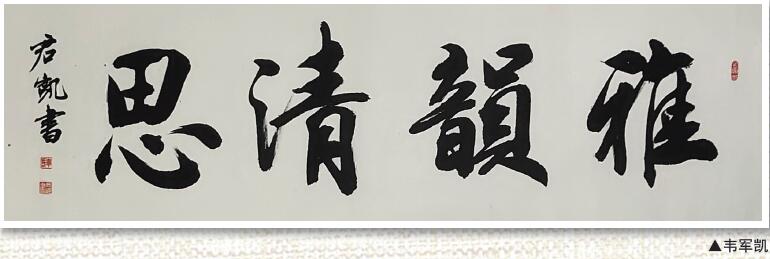 雅韻清思
君凱書
▲韦军凯